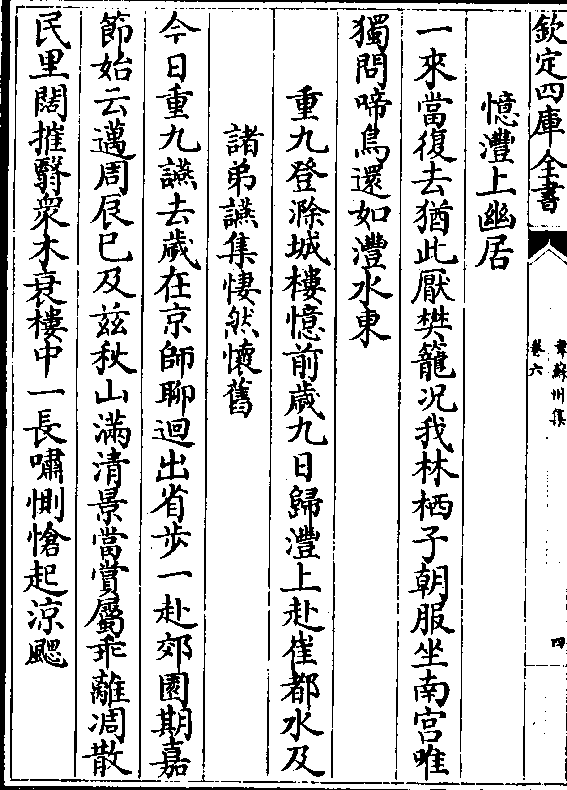 欽定四庫全書
韋蘇州集
卷六
四
憶灃上幽居
一來當復去猶此厭樊籠况我林栖子朝服坐南宫唯
獨問啼鳥還如灃水東
重九登滁城樓憶前歲九日歸灃上赴崔都水及
諸弟讌集悽然懷舊
今日重九讌去歲在京師聊迴出省步一赴郊園期嘉
節始云邁周辰已及兹秋山滿清景當賞屬乖離凋散
民里闊摧翳衆木衰樓中一長嘯惻愴起凉颸